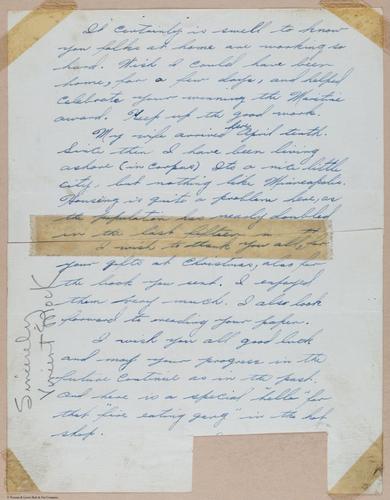 It certainly is swell to know
you folks at home are working so
hard. Wish I could have been
home, for a few days, and helped
celebrate your winning the Maritime
award. Keep up the good work.
My wife arrived here April tenth.
Since then I have been living
ashore (in Corpus) Its a nice little
city, but nothing like Minneapolis.
Housing is quite a problem here, as
the population has nearly doubled
in the last fifteen
I wish to thank you all, for
your gifts at Christmas, also for
the book you send. I enjoyed
them very much. I also look
forward to reading your paper.
I wish you all good luck
and may your progress in the
future continue as in the past.
and here is a special "hello" for
that "fire eating gang" in the
shop.
Sincerely
Vincent